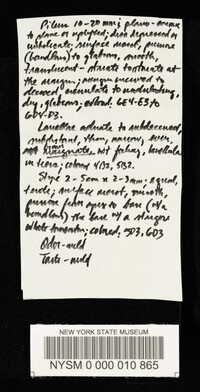 Pileus 10-20 mm; plano-convex
to plane or uplifted; disc depressed or
umbilicate; surface moist, pruinose
(handlens) to glabrous, smooth,
translucent-striate to striate at
the margin; margin incurved to
decurved crenulate to undulating,
dry, glabrous; colored 6E4-6E3 to
6D4-D3.
Lamellae adnate to subdecurrent,
subdistant, thin, narrow, even,
not forking, lamellulae
in tiers; colored 4B2, 5B2.
Stipe 2-5cm x 2-3mm; equal,
terete; surface moist, smooth,
pruinose from apex to base (w/a
handlens) the base w/ a
white tomentum; colored 5D3, 6D3
Odor-mild
Taste-mild
NEW YORK STATE MUSEUM
NYSM 0 000 010 865